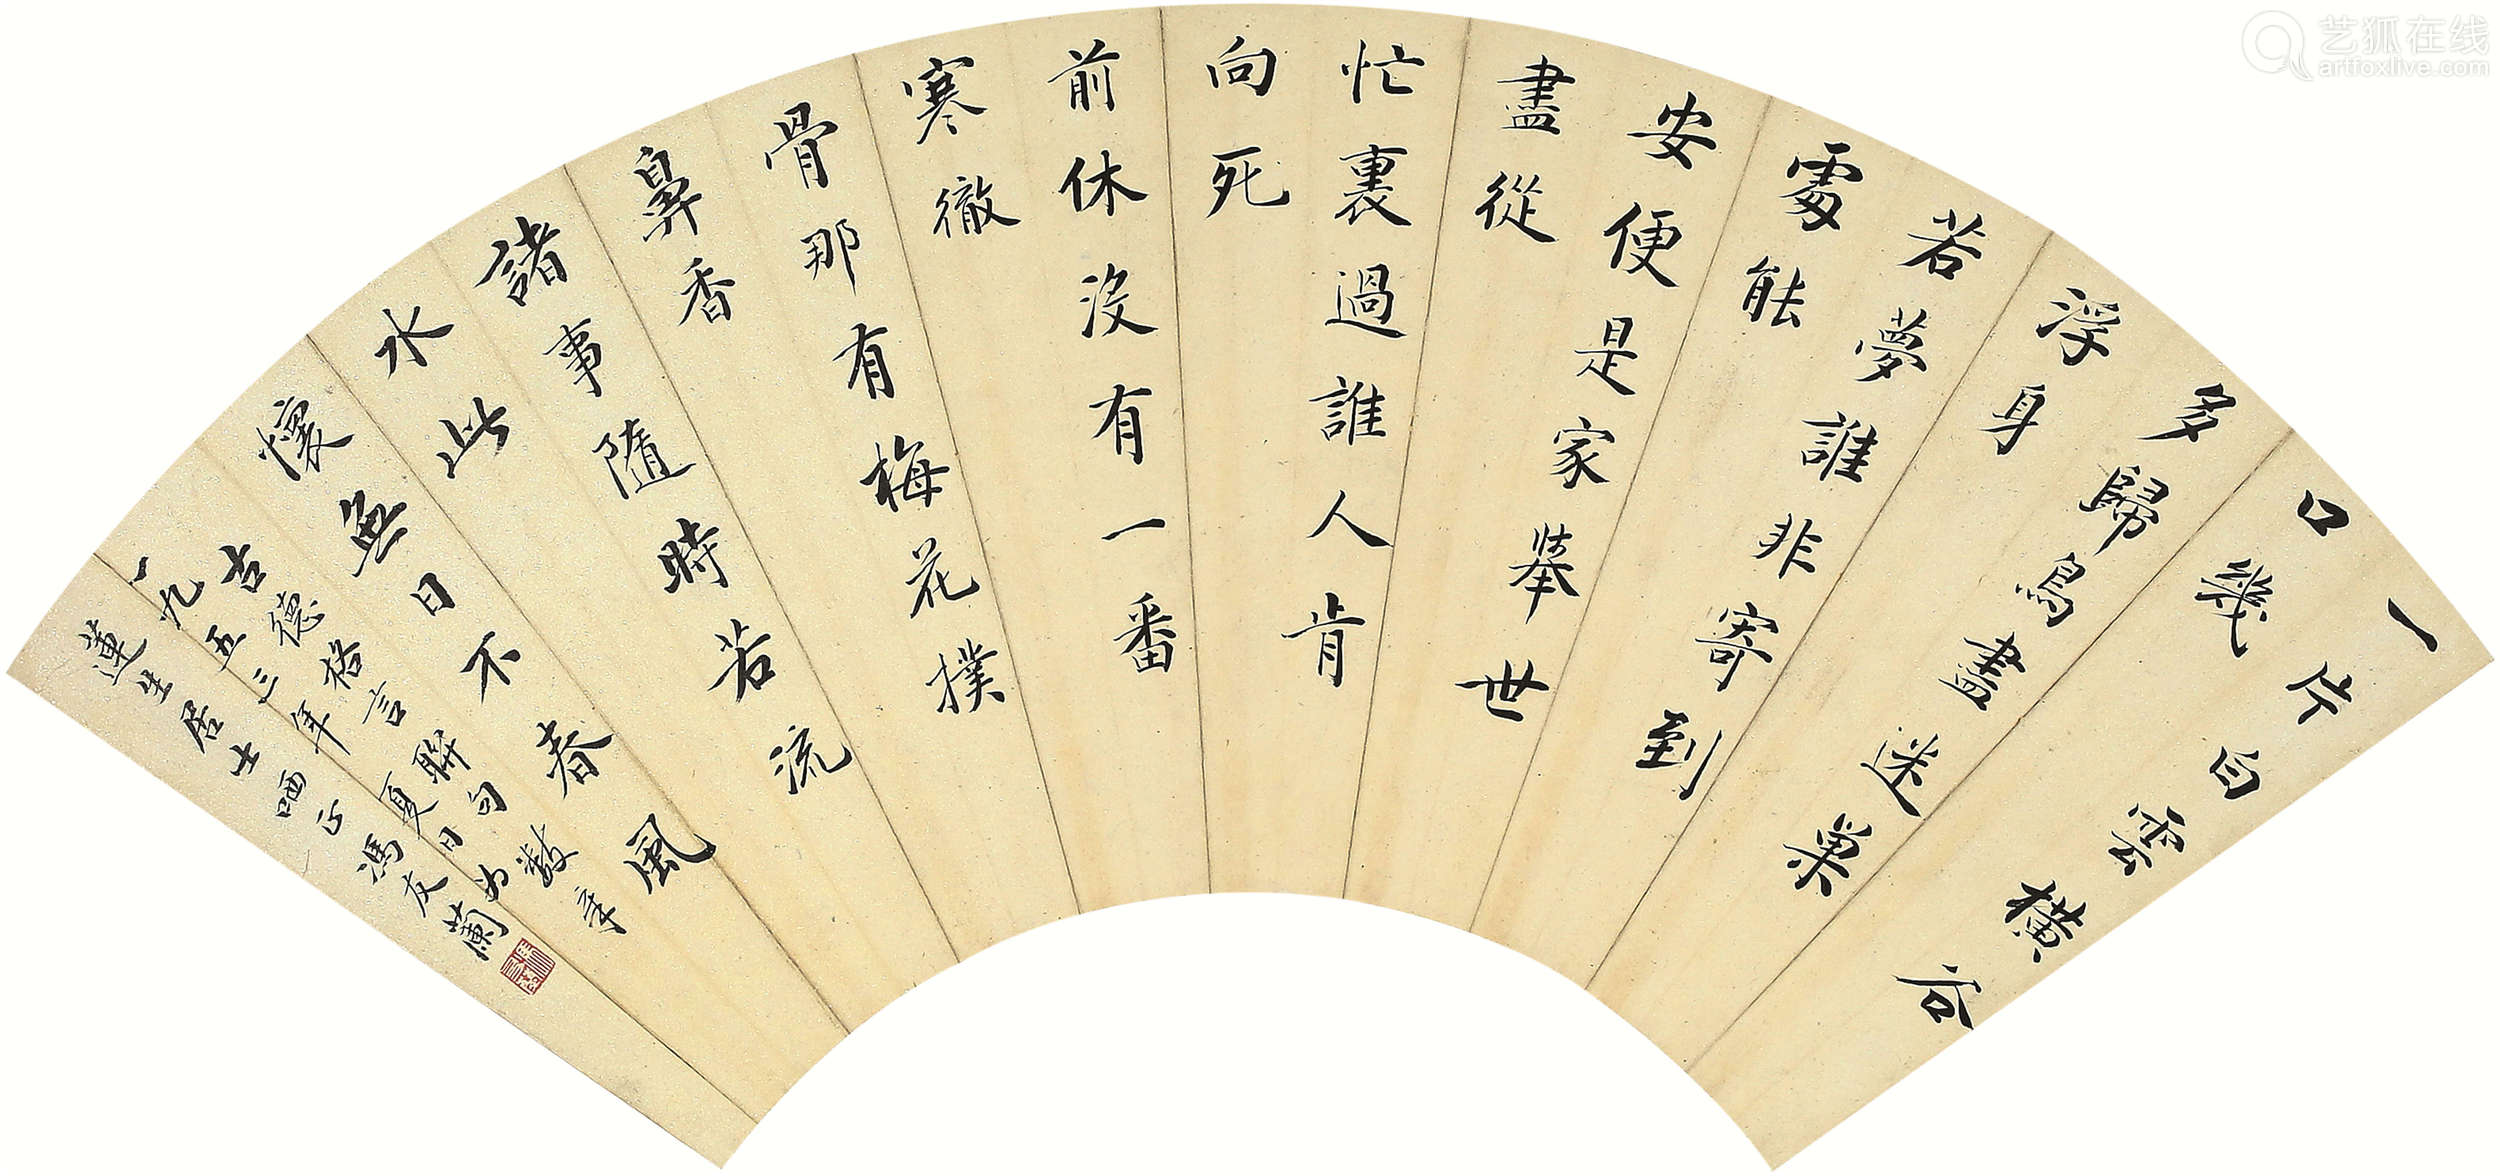 一片白雲橫谷
口幾
多歸鳥盡迷巢
浮身
若夢誰非寄到
處能
安便是家舉世
盡從
忙裏過誰人肯
向死
前休沒有一番
寒徹
骨那有梅花撲
鼻香
諸事隨時若流
水此
懷無日不春風
古德格言聯句數章
一九五三年夏日為
蓮生居士哂正 馮友蘭
艺狐在线
artfoxlive.com